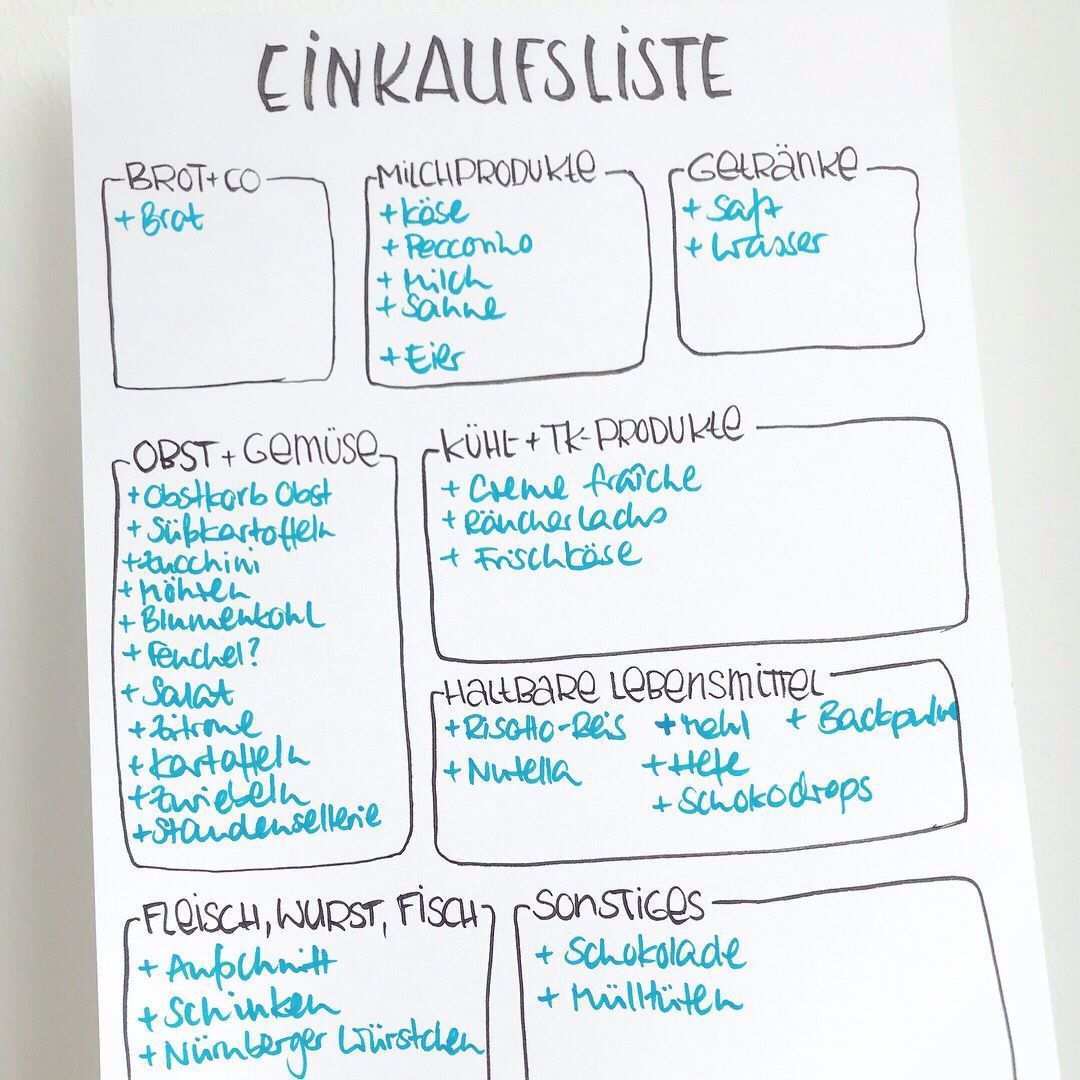 EINKAUFSLISTE
BROT + CO
+ Brot
MILCHPRODUKTE
+ Käse
+ Pecconino
+ Milch
+ Sahne
+ Eier
GETRÄNKE
+ Saft
+ Wasser
OBST + GEMÜSE
+ Obstkorb Obst
+ Süßkartoffeln
+ Zucchini
+ Möhren
+ Blumenkohl
+ Fenchel?
+ Salat
+ Zitrone
+ Kartoffeln
+ Zwiebeln
+ Staudensellerie
KÜHL + TK-PRODUKTE
+ Creme fraîche
+ Räucherlachs
+ Frischkäse
HALTBARE LEBENSMITTEL
+ Risotto-Reis + Mehl + Backpulver
+ Nutella + Hefe
+ Schokodrops
FLEISCH, WURST, FISCH
+ Aufschnitt
+ Schinken
+ Nürnberger Würstchen
SONSTIGES
+ Schokolade
+ Mülltüten